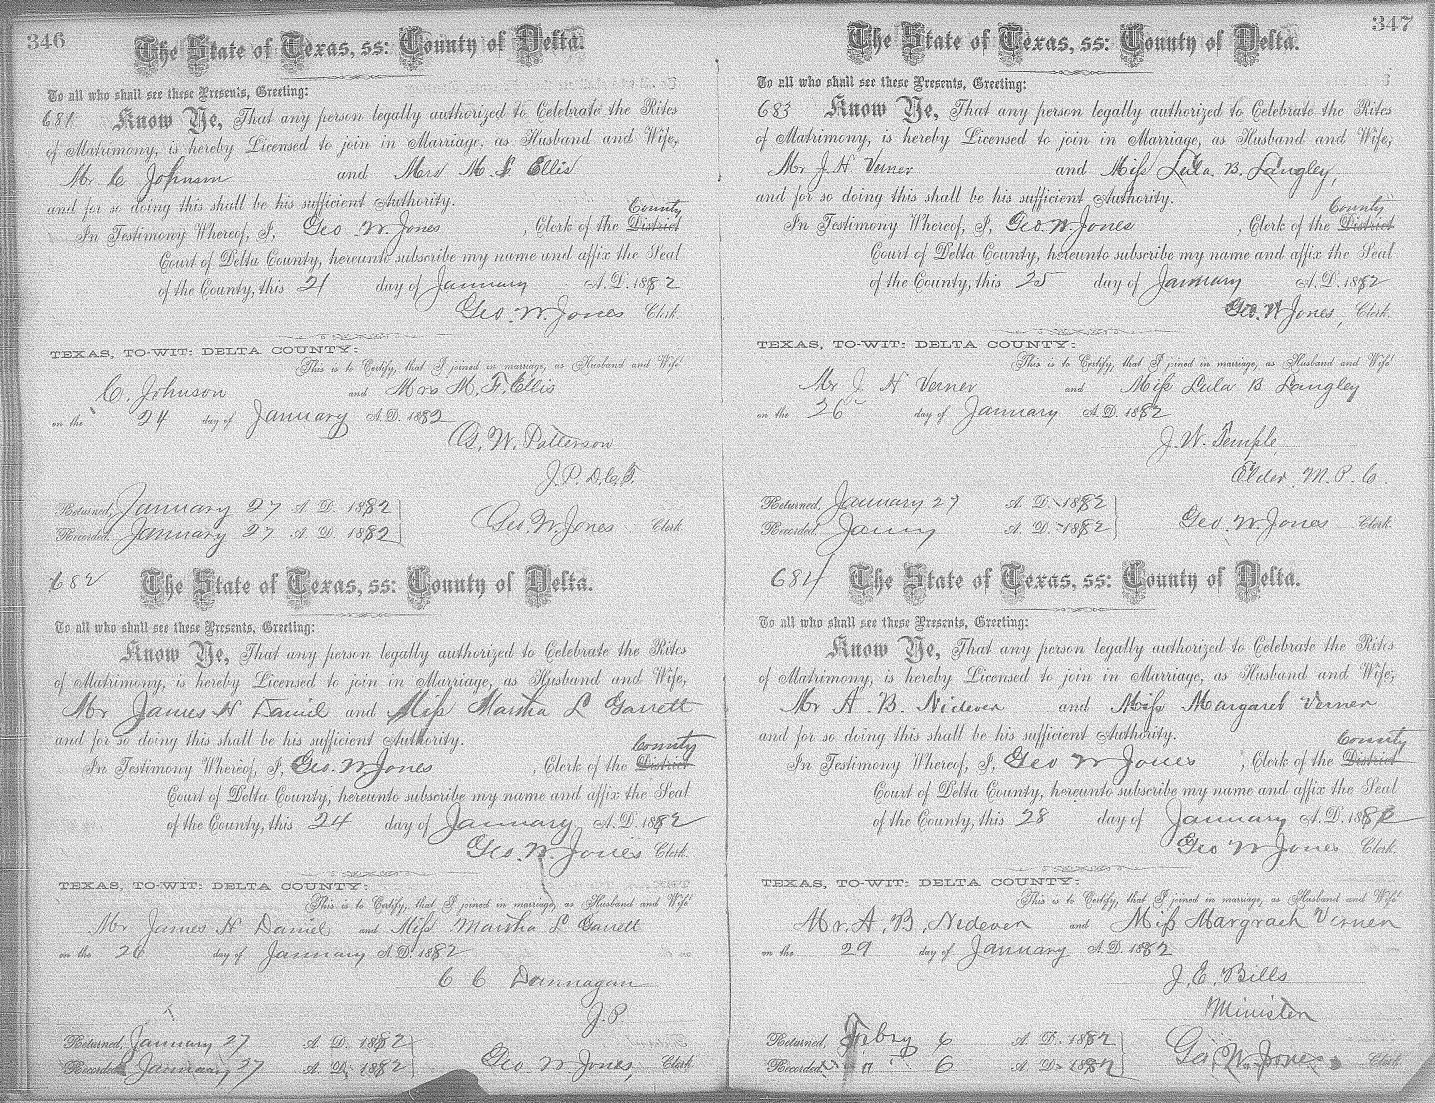 346
The State of Texas, ss: County of Delta.
To all who shall see these Presents, Greeting:
681 Know Ye, That any person legally authorized to Celebrate the Rites
of Matrimony, is hereby Licensed to join in Marriage, as Husband and Wife,
Mr C Johnson and Mrs M F Ellis
and for so doing this shall be his sufficient Authority.
County
In Testimony Whereof, I, Geo. W. Jones, Clerk of the District
Court of Delta County, hereunto subscribe my name and affix the Seal
of the County, this 21 day of January A.D. 1882
Geo. W. Jones Clerk.
TEXAS, TO-WIT: DELTA COUNTY:
This is to Certify, that I joined in marriage, as Husband and Wife
C. Johnson and Mrs M. F. Ellis
on the 24 day of January A.D. 1882
G. W. Patterson
J.P. D.Co.T.
Returned, January 27 A. D. 1882
Recorded, January 27 A. D. 1882 Geo W. Jones Clerk
682 The State of Texas, ss: County of Delta.
To all who shall see these Presents, Greeting:
Know Ye, That any person legally authorized to Celebrate the Rites
of Matrimony, is hereby Licensed to join in Marriage, as Husband and Wife,
Mr James H Daniel and Miss Martha L Garrett
and for so doing this shall be his sufficient Authority.
County
In Testimony Whereof, I, Geo. W Jones, Clerk of the District
Court of Delta County, hereunto subscribe my name and affix the Seal
of the County, this 24 day of January A.D. 1882
Geo. W. Jones Clerk.
TEXAS, TO-WIT: DELTA COUNTY:
This is to Certify, that I joined in marriage, as Husband and Wife
Mr James H Daniel and Miss Martha L Garrett
on the 26 day of January A.D. 1882
C C Dannagan
J.P
Returned, January 27 A. D. 1882
Recorded, January 27 A. D. 1882 Geo W Jones, Clerk
347
The State of Texas, ss: County of Delta.
To all who shall see these Presents, Greeting:
683 Know Ye, That any person legally authorized to Celebrate the Rites
of Matrimony, is hereby Licensed to join in Marriage, as Husband and Wife,
Mr J H Verner and Miss Lula. B. Langley,
and for so doing this shall be his sufficient Authority.
County
In Testimony Whereof, I, Geo. W Jones, Clerk of the District
Court of Delta County, hereunto subscribe my name and affix the Seal
of the County, this 25 day of January A.D. 1882
Geo. W Jones, Clerk.
TEXAS, TO-WIT: DELTA COUNTY:
This is to Certify, that I joined in marriage, as Husband and Wife
Mr J. H Verner and Miss Lula B Langley
on the 26 day of January A.D. 1882
J. W. Temple
Elder, M. P. C.
Returned, January 27 A. D. 1882
Recorded, A. D. 1882 Geo. W. Jones Clerk.
684 The State of Texas, ss: County of Delta.
To all who shall see these Presents, Greeting:
Know Ye, That any person legally authorized to Celebrate the Rites
of Matrimony, is hereby Licensed to join in Marriage, as Husband and Wife,
Mr A. B. Nideven and Miss Margaret Verner
and for so doing this shall be his sufficient Authority.
County
In Testimony Whereof, I, Geo W Jones, Clerk of the District
Court of Delta County, hereunto subscribe my name and affix the Seal
of the County, this 28 day of January A.D. 1882
Geo W Jones Clerk.
TEXAS, TO-WIT: DELTA COUNTY:
This is to Certify, that I joined in marriage, as Husband and Wife
Mr. A. B. Nideven and Miss Margrach Verner
on the 29 day of January A.D. 1882
J. E. Bills
Minister
Returned, 6 A. D. 1882
Recorded, " 6 A. D. 1882 Geo W. Jones Clerk